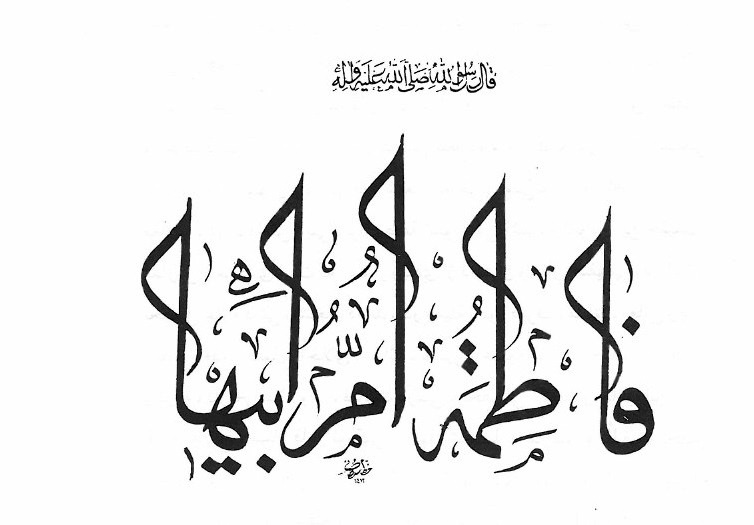 قال رسول الله صلى الله عليه وآله
فاطمة أم أبيها